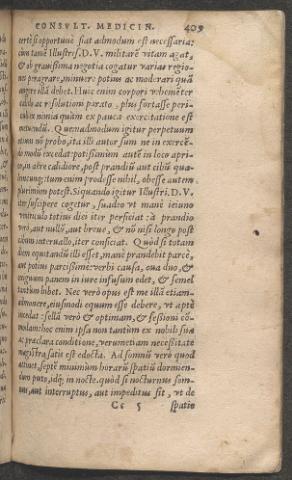 CONSVLT. MEDICIN. 409
certè si opportunè fiat admodum est necessaria:
cùm tamē Illustres. D.V. militarē vitam agat,
& ob grauissima negotia cogatur varias regio-
nes peragrare, minuere potius ac moderari quā
augere illā debet. Huic enim corpori vehemēter
calido ac resolutioni parato, plus fortasse peri-
culi ex nimia quàm ex pauca exercitatione est
metuendū. Quemadmodum igitur perpetuum
otium nō probo, ita illi autor sum ne in exercē-
do modū excedat: potissimum autē in loco apri-
co, aëre calidiore, post prandiū aut cibū qua-
lemcunq; tum enim prodesse nihil, obesse autem
plurimùm potest. Siquando igitur Illustri. D.V.
iter suscipere cogetur, suadeo vt manè ieiuno
ventriculo totius diei iter perficiat: à prandio
verò, aut nullū, aut breue, & nō nisi longo post
cibum interuallo, iter conficiat. Quòd si totam
diem equitandū illi esset, manè prandebit parcè,
aut potius parcissimè: verbi causa, oua duo, &
exiguum panem in iure infusum edet, & semel
tantùm bibet. Nec verò opus est me illā etiam
admonere, eiusmodi equum esse debere, vt aptè
incedat: sellā verò & optimam, & sessioni cō-
modam: hoc enim ipsa non tantùm ex nobili sua
& præclara conditione, verumetiam necessitate
magistra satis est edocta. Ad somnū verò quod
attinet, septē minimùm horarū spatiū dormien-
dum puto, idq; in nocte. quòd si nocturnus som-
nus, aut interruptus, aut impeditus sit, vt de
Cc 5 spatio